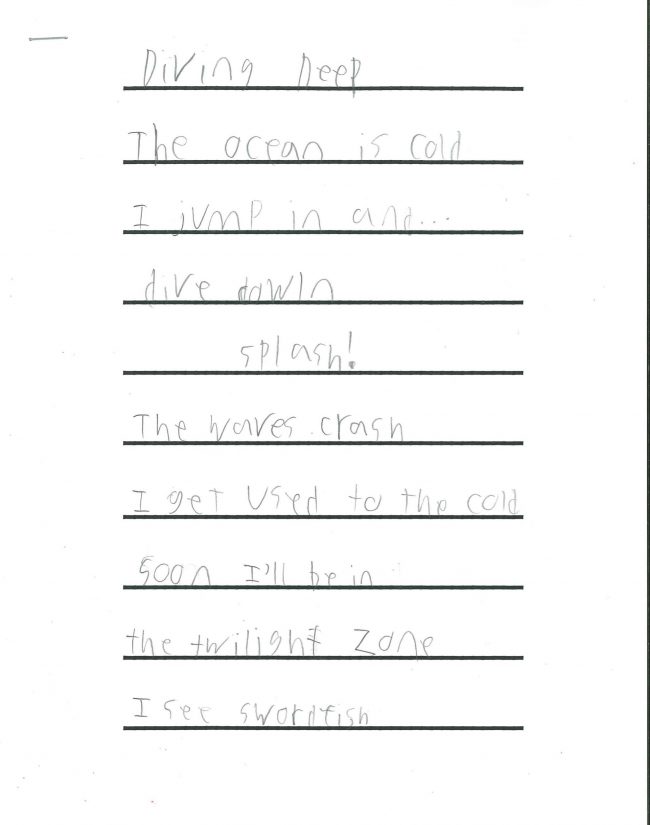 Diving Deep
The ocean is cold
I jump in and...
dive down
splash!
The waves crash
I get used to the cold
soon I'll be in
the twilight zone
I see swordfish